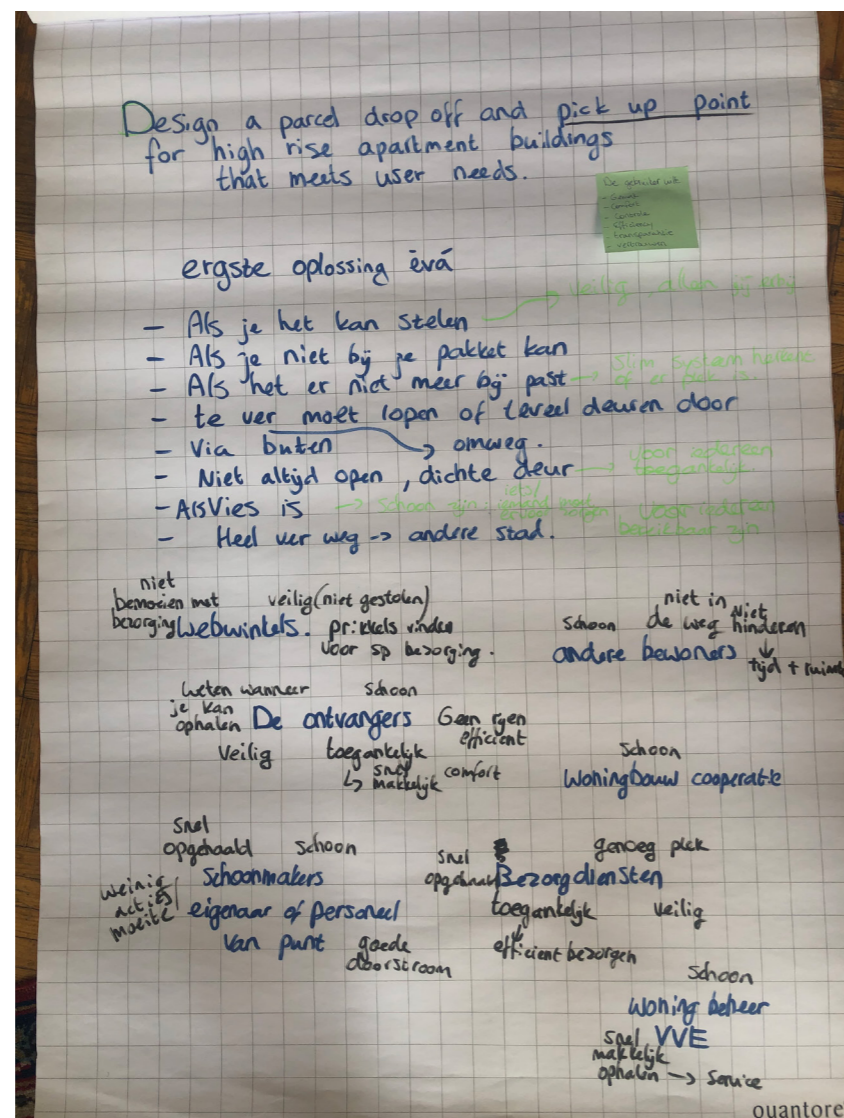 Design a parcel drop off and pick up point
for high rise apartment buildings
that meets user needs.
De gebruiker wil:
- Comfort
- Controle
- Efficiency
- transparantie
- vertrouwen
ergste oplossing èvá
- Als je het kan stelen → veilig, alleen jij erbij
- Als je niet bij je pakket kan
- Als het er niet meer bij past → Slim systeem
of er plek is.
- te ver moet lopen of teveel deuren door
- Via buten → omweg.
- Niet altijd open, dichte deur → voor iedereen
toegankelijk
- Als Vies is → Schoon zijn: iets/iemand moet
Voor iedereen
- Heel ver weg -> andere stad.
niet
bemoeien met
bezorging
veilig (niet gestolen)
Webwinkels. prikkels vinden
voor sp bezorging.
niet in
schoon de weg niet hinderen
andere bewoners ↓
tijd + ruimte
weten wanneer
je kan
ophalen
schoon
De ontvangers Geen ryen
efficient
Veilig toegankelijk
↳ snel
makkelijk comfort
Schoon
Woningbouw cooperatie
snel
opgehaald schoon
Schoonmakers
weinig
acties/
moeite
eigenaar of personeel
van punt goede
doorstroom
snel
opgehaald
genoeg plek
Bezorgdiensten
toegankelijk veilig
↓
efficient bezorgen
Schoon
woning beheer
VVE
snel
makkelijk
ophalen → service
quantore